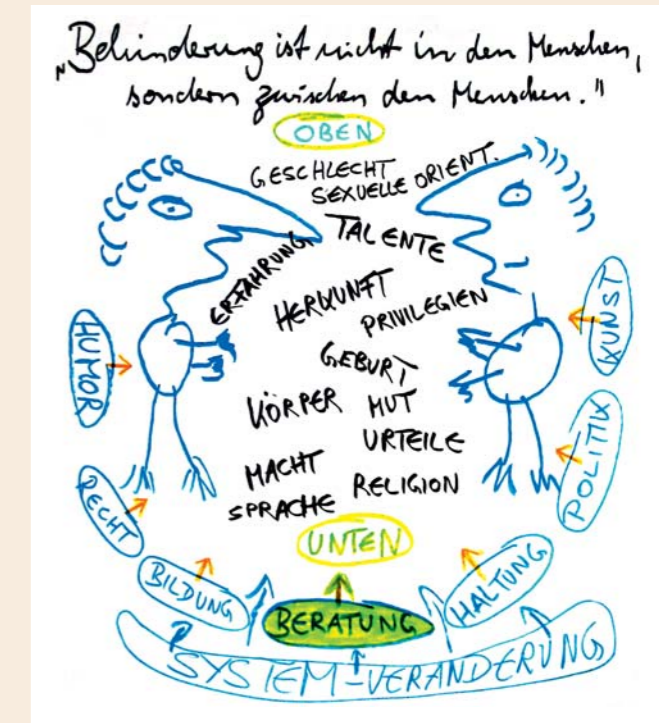 „Behinderung ist nicht in den Menschen,
sondern zwischen den Menschen."
OBEN
GESCHLECHT
SEXUELLE ORIENT.
TALENTE
ERFAHRUNG
HERKUNFT
PRIVILEGIEN
GEBURT
KÖRPER MUT
URTEILE
MACHT
SPRACHE RELIGION
UNTEN
HUMOR
KUNST
RECHT
POLITIK
BILDUNG
HALTUNG
BERATUNG
SYSTEM-VERÄNDERUNG